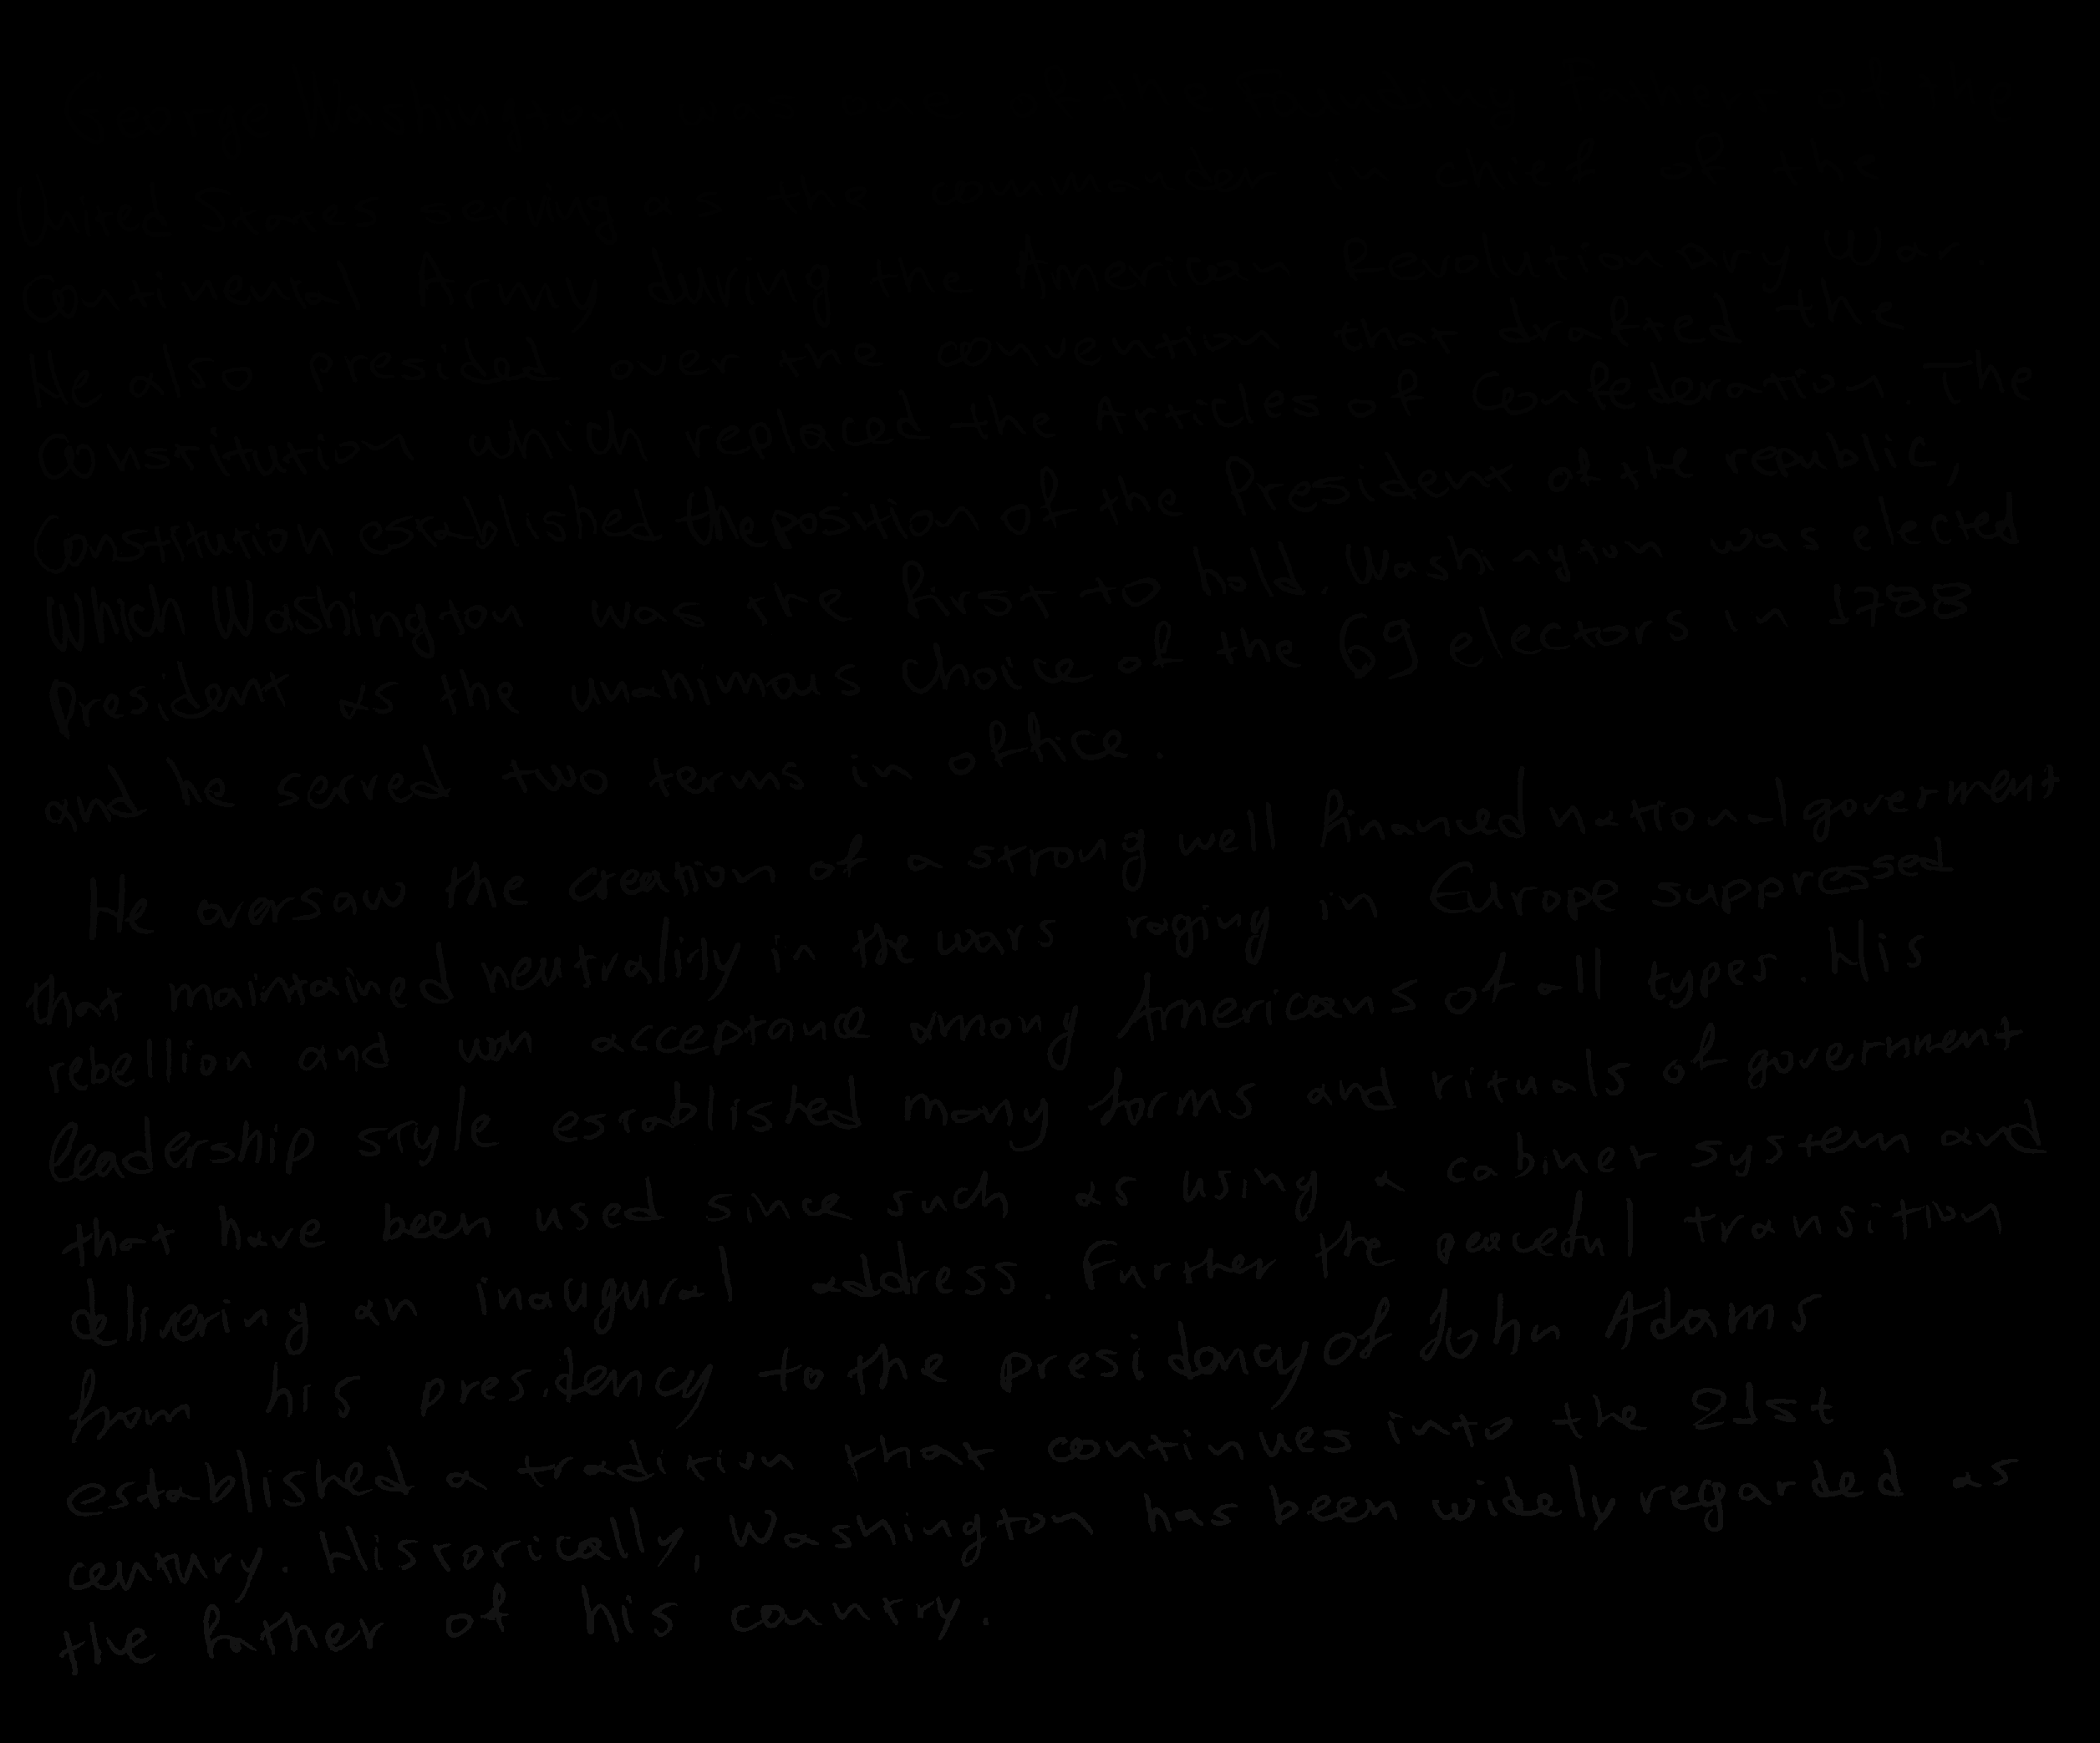 George Washington
United States serving as the commander in chief of the
Continental Army during the American Revolutionary War.
He also presided over the convention that drafted the
Constitution which replaced the Articles of Confederation. The
Constitution established the position of the President of the republic,
Which Washington was the first to hold. Washington was elected
President as the unanimous choice of the 69 electors in 1788
and he served two terms in office.
He oversaw the creation of a strong well financed national goverment
that maintained neutrality in the wars raging in Europe suppressed
rebellion and won acceptance among Americans of all types. His
leadership style established many forms and rituals of government
that have been used since such as using a cabinet system and
delivering an inaugural address. Further the peaceful transition
from his presidency to the presidency of John Adams
established a tradition that continues into the 21st
century. Historically, Washington has been widely regarded as
the father of his country.